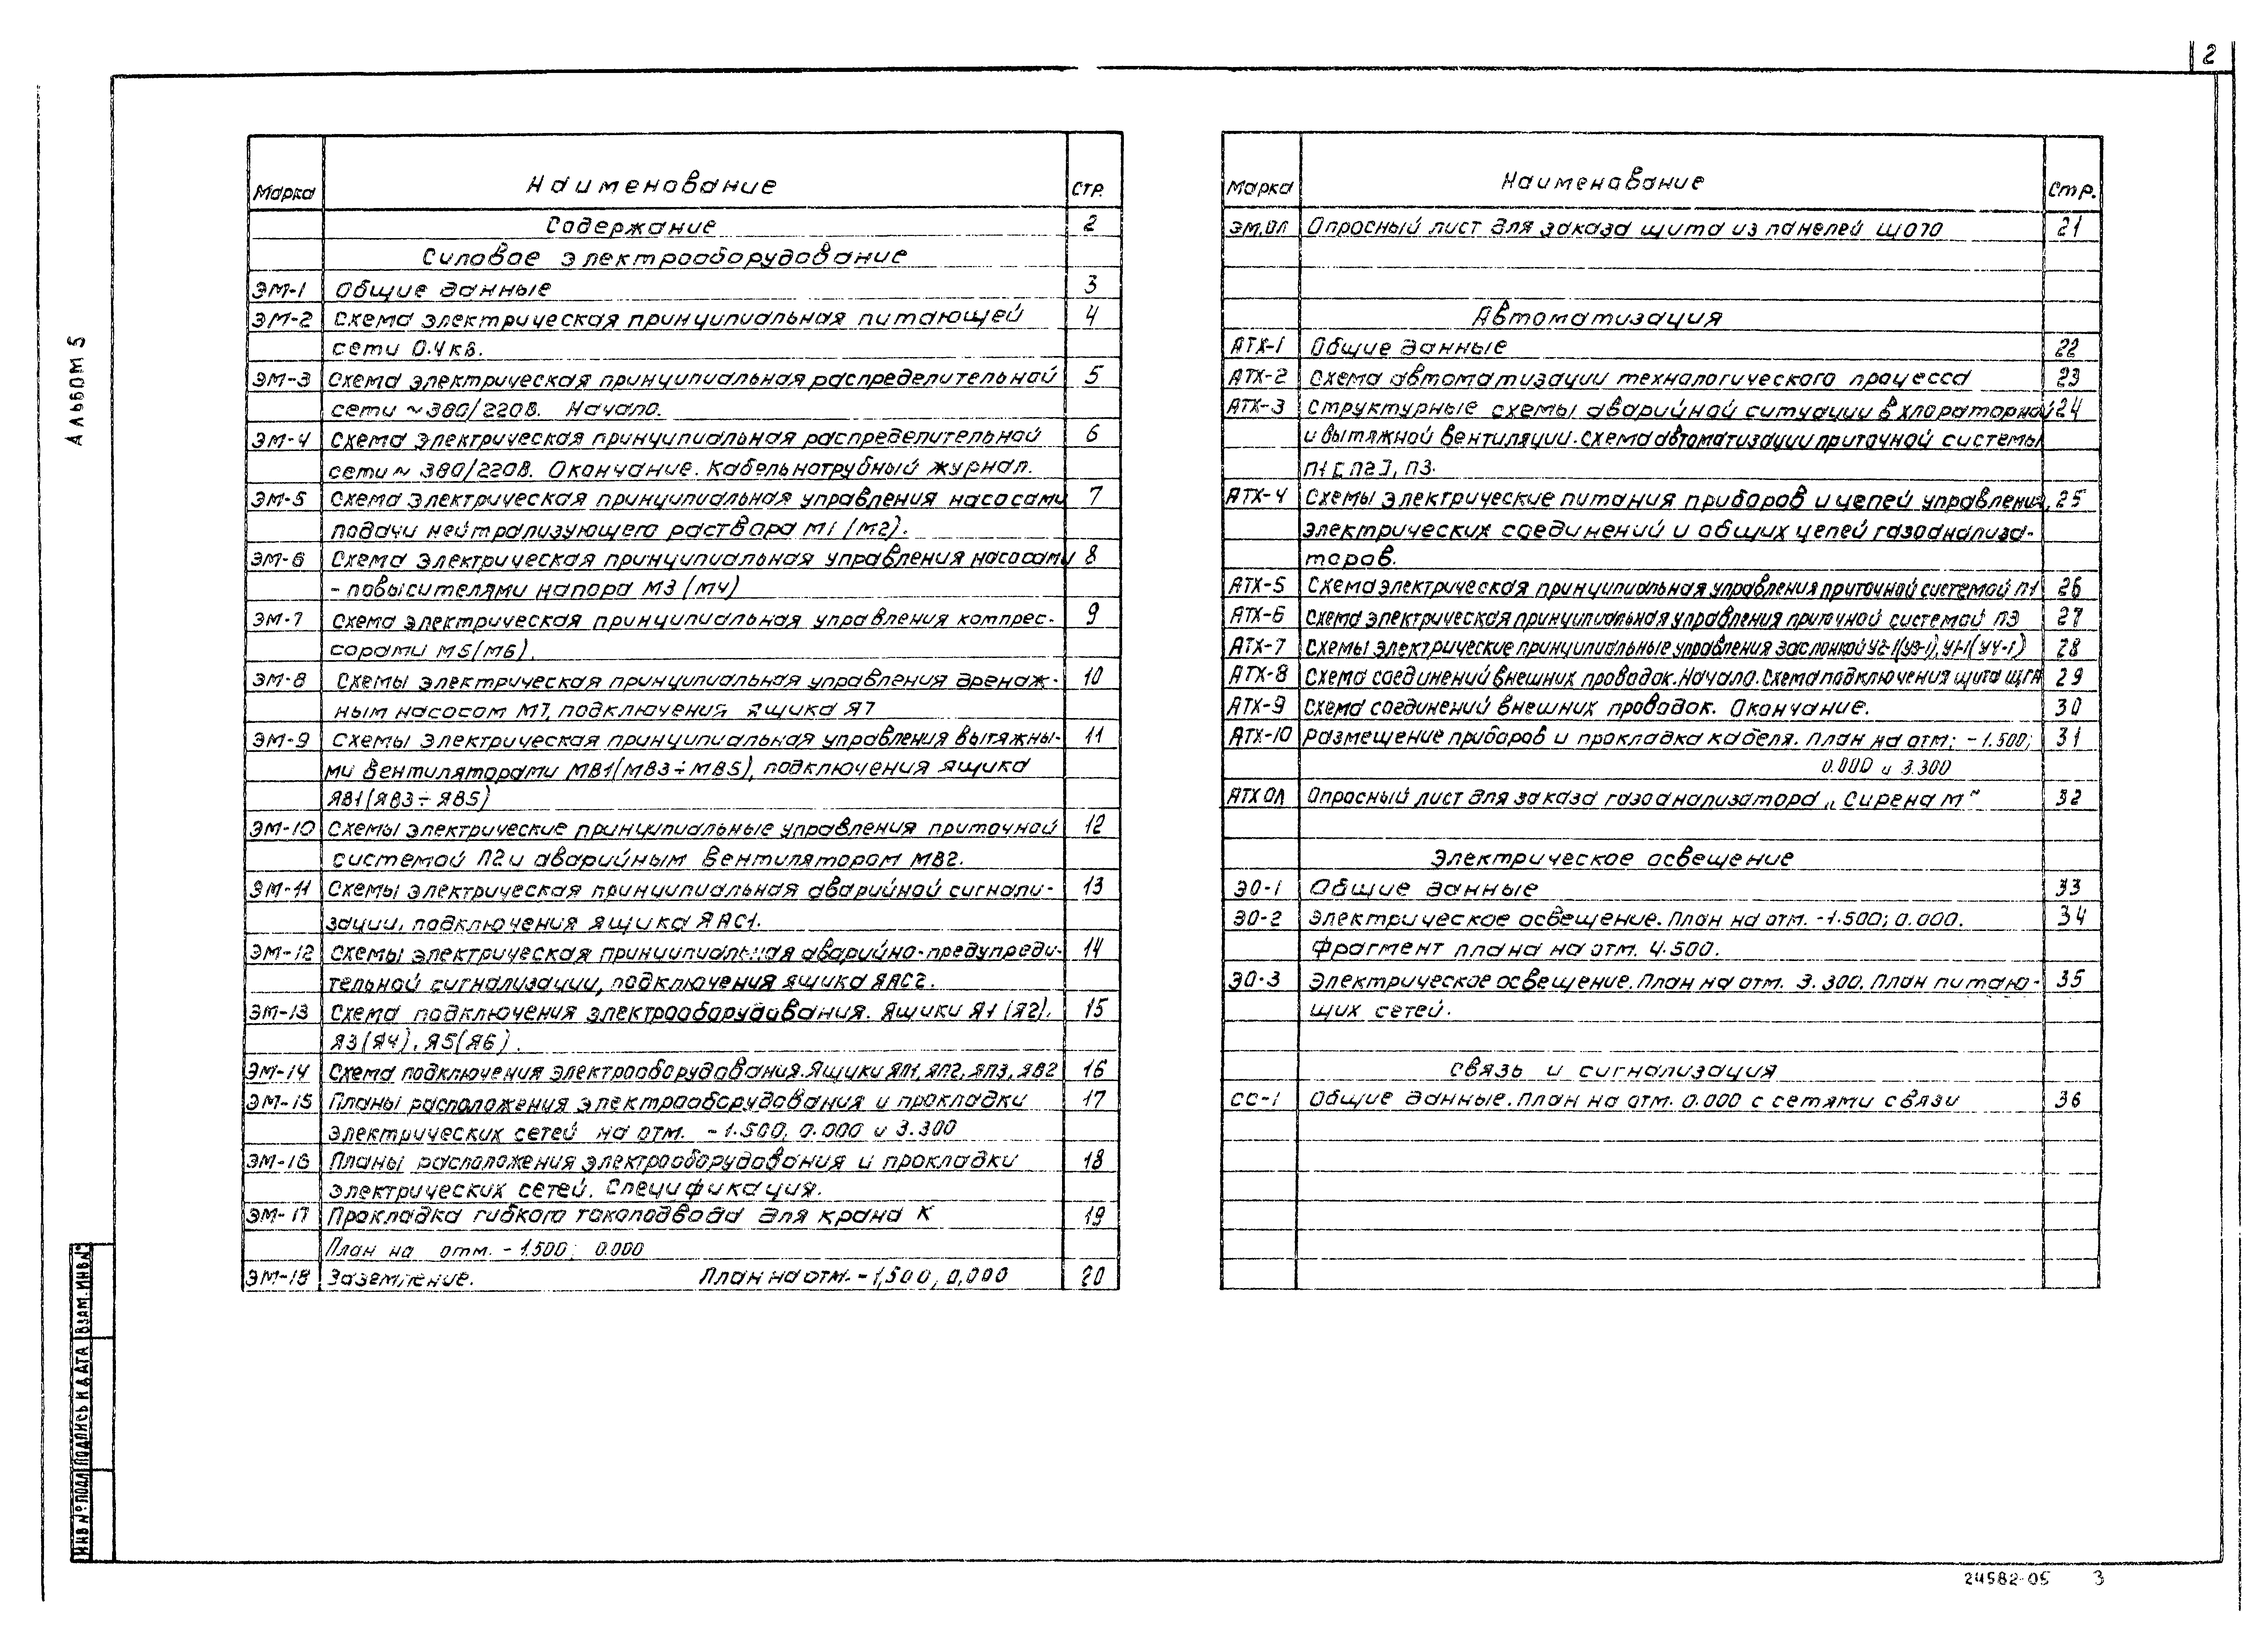 2
Альбом 5
Марка Наименование Стр.
Содержание 2
Силовое электрооборудование
ЭМ-1 Общие данные 3
ЭМ-2 Схема электрическая принципиальная питающей 4
сети 0.4кв.
ЭМ-3 Схема электрическая принципиальная распределительной 5
сети ~380/220В. Начало.
ЭМ-4 Схема электрическая принципиальная распределительной 6
сети ~ 380/220В. Окончание. Кабельнотрубный журнал.
ЭМ-5 Схема электрическая принципиальная управления насосами 7
подачи нейтрализующего раствора М1 (М2).
ЭМ-6 Схема электрическая принципиальная управления насосами 8
- повысителями напора М3 (М4)
ЭМ-7 Схема электрическая принципиальная управления компрес- 9
сорами М5(М6).
ЭМ-8 Схемы электрическая принципиальная управления дренаж- 10
ным насосом М7, подключения ящика Я7
ЭМ-9 Схемы электрическая принципиальная управления вытяжны- 11
ми вентиляторами МВ1(МВ3÷МВ5), подключения ящика
ЯВ1(ЯВ3÷ЯВ5)
ЭМ-10 Схемы электрические принципиальные управления приточной 12
системой П2 и аварийным вентилятором МВ2.
ЭМ-11 Схемы электрическая принципиальная аварийной сигнали- 13
зации, подключения ящика ЯАС1.
ЭМ-12 Схемы электрическая принципиальная аварийно-предупреди- 14
тельной сигнализации, подключения ящика ЯАС2.
ЭМ-13 Схема подключения электрооборудования. Ящики Я1 (Я2), 15
Я3(Я4), Я5(Я6).
ЭМ-14 Схема подключения электрооборудования. Ящики ЯП1, ЯП2, ЯП3, ЯВ2 16
ЭМ-15 Планы расположения электрооборудования и прокладки 17
электрических сетей на отм. -1.500, 0.000 и 3.300
ЭМ-16 Планы расположения электрооборудования и прокладки 18
электрических сетей. Спецификация.
ЭМ-17 Прокладка гибкого токоподвода для крана К 19
План на отм. -1.500; 0.000
ЭМ-18 Заземление. План на отм. -1,500, 0,000 20
Марка Наименование Стр.
ЭМ.ОЛ Опросный лист для заказа щита из панелей ЩО70 21
Автоматизация
АТХ-1 Общие данные 22
АТХ-2 Схема автоматизации технологического процесса 23
АТХ-3 Структурные схемы аварийной ситуации в хлораторной 24
и вытяжной вентиляции. Схема автоматизации приточной системы
П1 [П2], П3.
АТХ-4 Схемы электрические питания приборов и цепей управления, 25
электрических соединений и общих цепей газоанализа-
торов.
АТХ-5 Схема электрическая принципиальная управления приточной системой П1 26
АТХ-6 Схема электрическая принципиальная управления приточной системой П3 27
АТХ-7 Схемы электрические принципиальные управления заслонкой У2-1(У3-1), У1-1(У4-1) 28
АТХ-8 Схема соединений внешних проводок. Начало. Схема подключения щита ЩГА 29
АТХ-9 Схема соединений внешних проводок. Окончание. 30
АТХ-10 Размещение приборов и прокладка кабеля. План на отм: -1.500; 31
0.000 и 3.300
АТХ ОЛ Опросный лист для заказа газоанализатора „Сирена М" 32
Электрическое освещение
ЭО-1 Общие данные 33
ЭО-2 Электрическое освещение. План на отм. -1.500; 0.000. 34
Фрагмент плана на отм. 4.500.
ЭО-3 Электрическое освещение. План на отм. 3.300. План питаю- 35
щих сетей.
Связь и сигнализация
СС-1 Общие данные. План на отм. 0.000 с сетями связи 36
ИНВ № ПОДЛ ПОДПИСЬ И ДАТА ВЗАМ. ИНВ №
24582-05 3